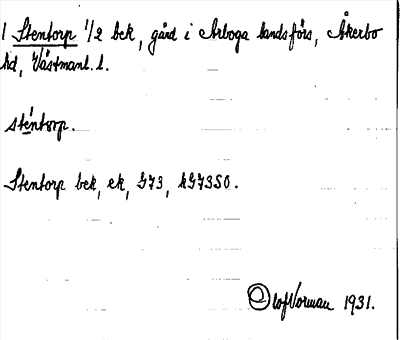 1 Stentorp 1/2 bek, gård i Arboga landsförs, Åkerbo
hd, Västmanl. l.
sténtorp.
Stentorp bek, ek, G73, kG73SO.
Olof Norman 1931.